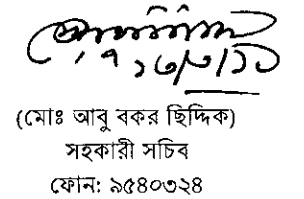 (মোঃ আবু বকর ছিদ্দিক)
সহকারী সচিব
ফোন: ৯৫৪০৩২৪